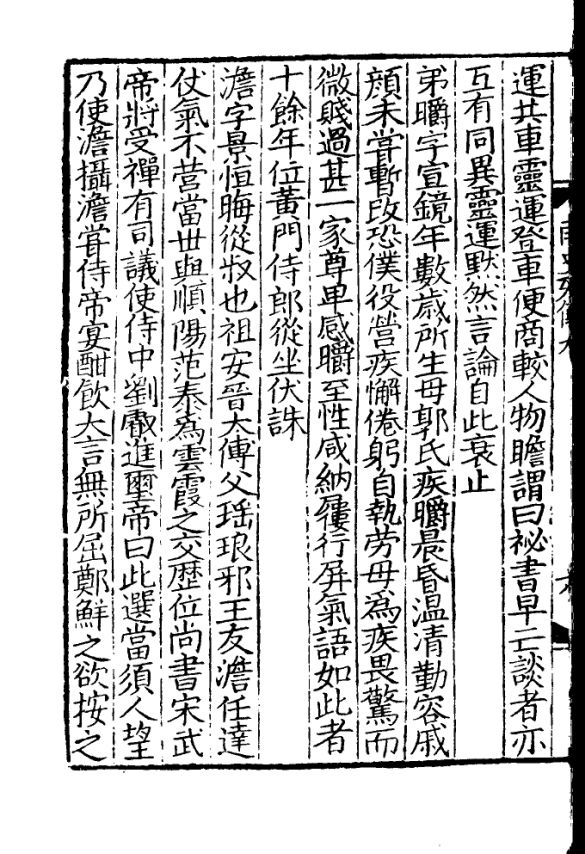 運共車靈運登車便商較人物瞻謂曰祕書早亡談者亦
互有同異靈運黙然言論自此衰止
弟㬭字宣鏡年數歳所生母郭氏疾㬭晨昏温清勤容戚
顔未甞暫改恐僕役營疾懈倦躬自執勞母爲疾畏驚而
微賤過甚一家尊卑感㬭至性咸納屨行屏氣語如此者
十餘年位黄門侍郎從坐伏誅
澹字景恒晦從叔也祖安晉太傅父瑶琅邪王友澹任達
仗氣不營當世與順陽范泰爲雲霞之交歴位尚書宋武
帝將受禪有司議使侍中劉叡進璽帝曰此選當須人望
乃使澹攝澹甞侍帝宴酣飲大言無所屈鄭鮮之欲按之